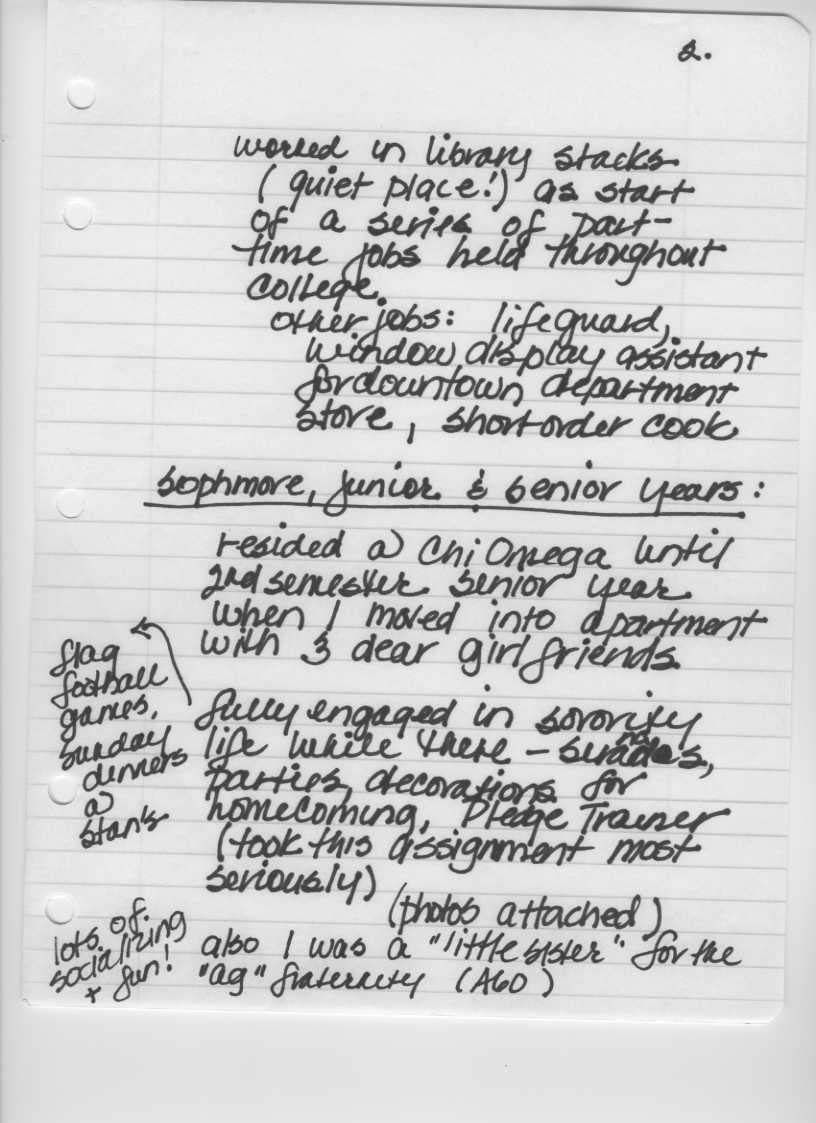 2.
worked in library stacks
(quiet place!) as start
of a series of part-
time jobs held throughout
college.
other jobs: lifeguard,
window display assistant
for downtown department
store, short-order cook
sophmore, junior & senior years:
resided @ Chi Omega until
2nd semester senior year
when I moved into apartment
with 3 dear girlfriends.
flag
football
games,
sunday
dinners
@
Stan's
fully engaged in sorority
life while there -
parties, decorations for
homecoming, Pledge Trainer
(took this assignment most
seriously)
(photos attached)
lots of
socializing
+ fun!
also I was a "little sister" for the
"ag" fraternity (AGO)